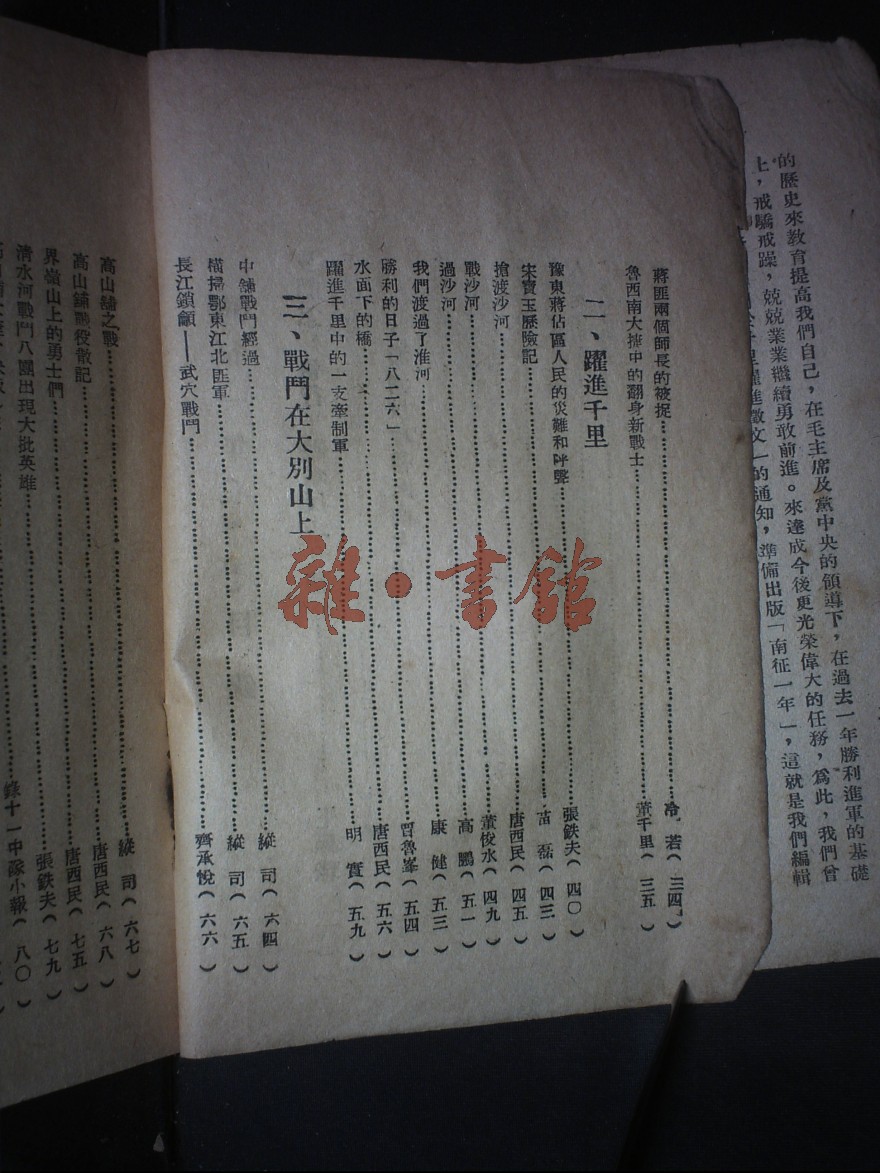 的歷史來教育提高我們自己，在毛主席及黨中央的領導下，在過去一年勝利進軍的基礎
上，戒驕戒躁，兢兢業業繼續勇敢前進。來達成今後更光榮偉大的任務，爲此，我們曾
躍進徵文」的通知，準備出版「南征一年」，這就是我們編輯
蔣匪兩個師長的被捉……冷　若（三四）
魯西南大捷中的翻身新戰士……董千里（三五）
二、躍進千里
豫東蔣佔區人民的災難和呼聲……張鉄夫（四〇）
宋寶玉歷險記……苗　磊（四三）
搶渡沙河……唐西民（四五）
戰沙河……董俊水（四九）
過沙河……高　鵬（五一）
我們渡過了淮河……康　健（五三）
勝利的日子「八二六」……曾魯峯（五四）
水面下的橋……唐西民（五六）
躍進千里中的一支牽制軍……明　實（五九）
三、戰鬥在大別山上
中舖戰鬥經過……縱　司（六四）
橫掃鄂東江北匪軍……縱　司（六五）
長江鎖鑰——武穴戰鬥……齊承悅（六六）
高山舖之戰……縱　司（六七）
高山舖戰役散記……唐西民（六八）
界嶺山上的勇士們……唐西民（七五）
清水河戰鬥八團出現大批英雄……張鉄夫（七九）
錄十一中隊小報（八〇）
雜·書館